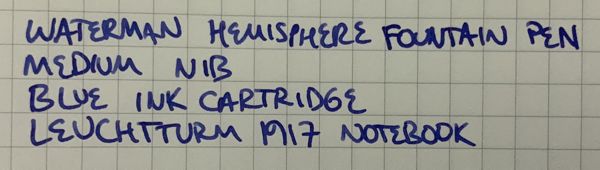 WATERMAN HEMISPHERE FOUNTAIN PEN
MEDIUM NIB
BLUE INK CARTRIDGE
LEUCHTTURM 1917 NOTEBOOK